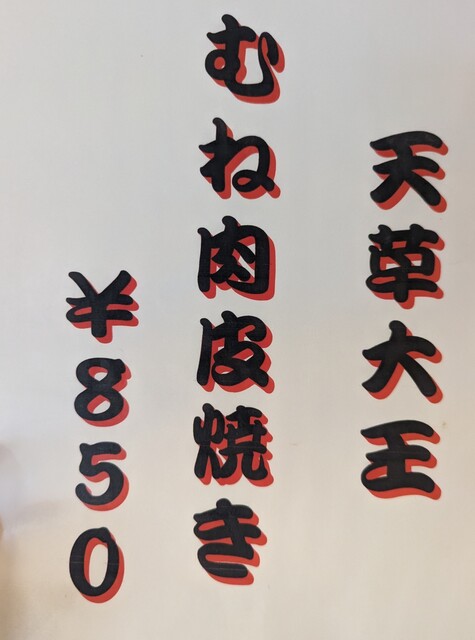 天草大王
むね肉皮焼き
¥850